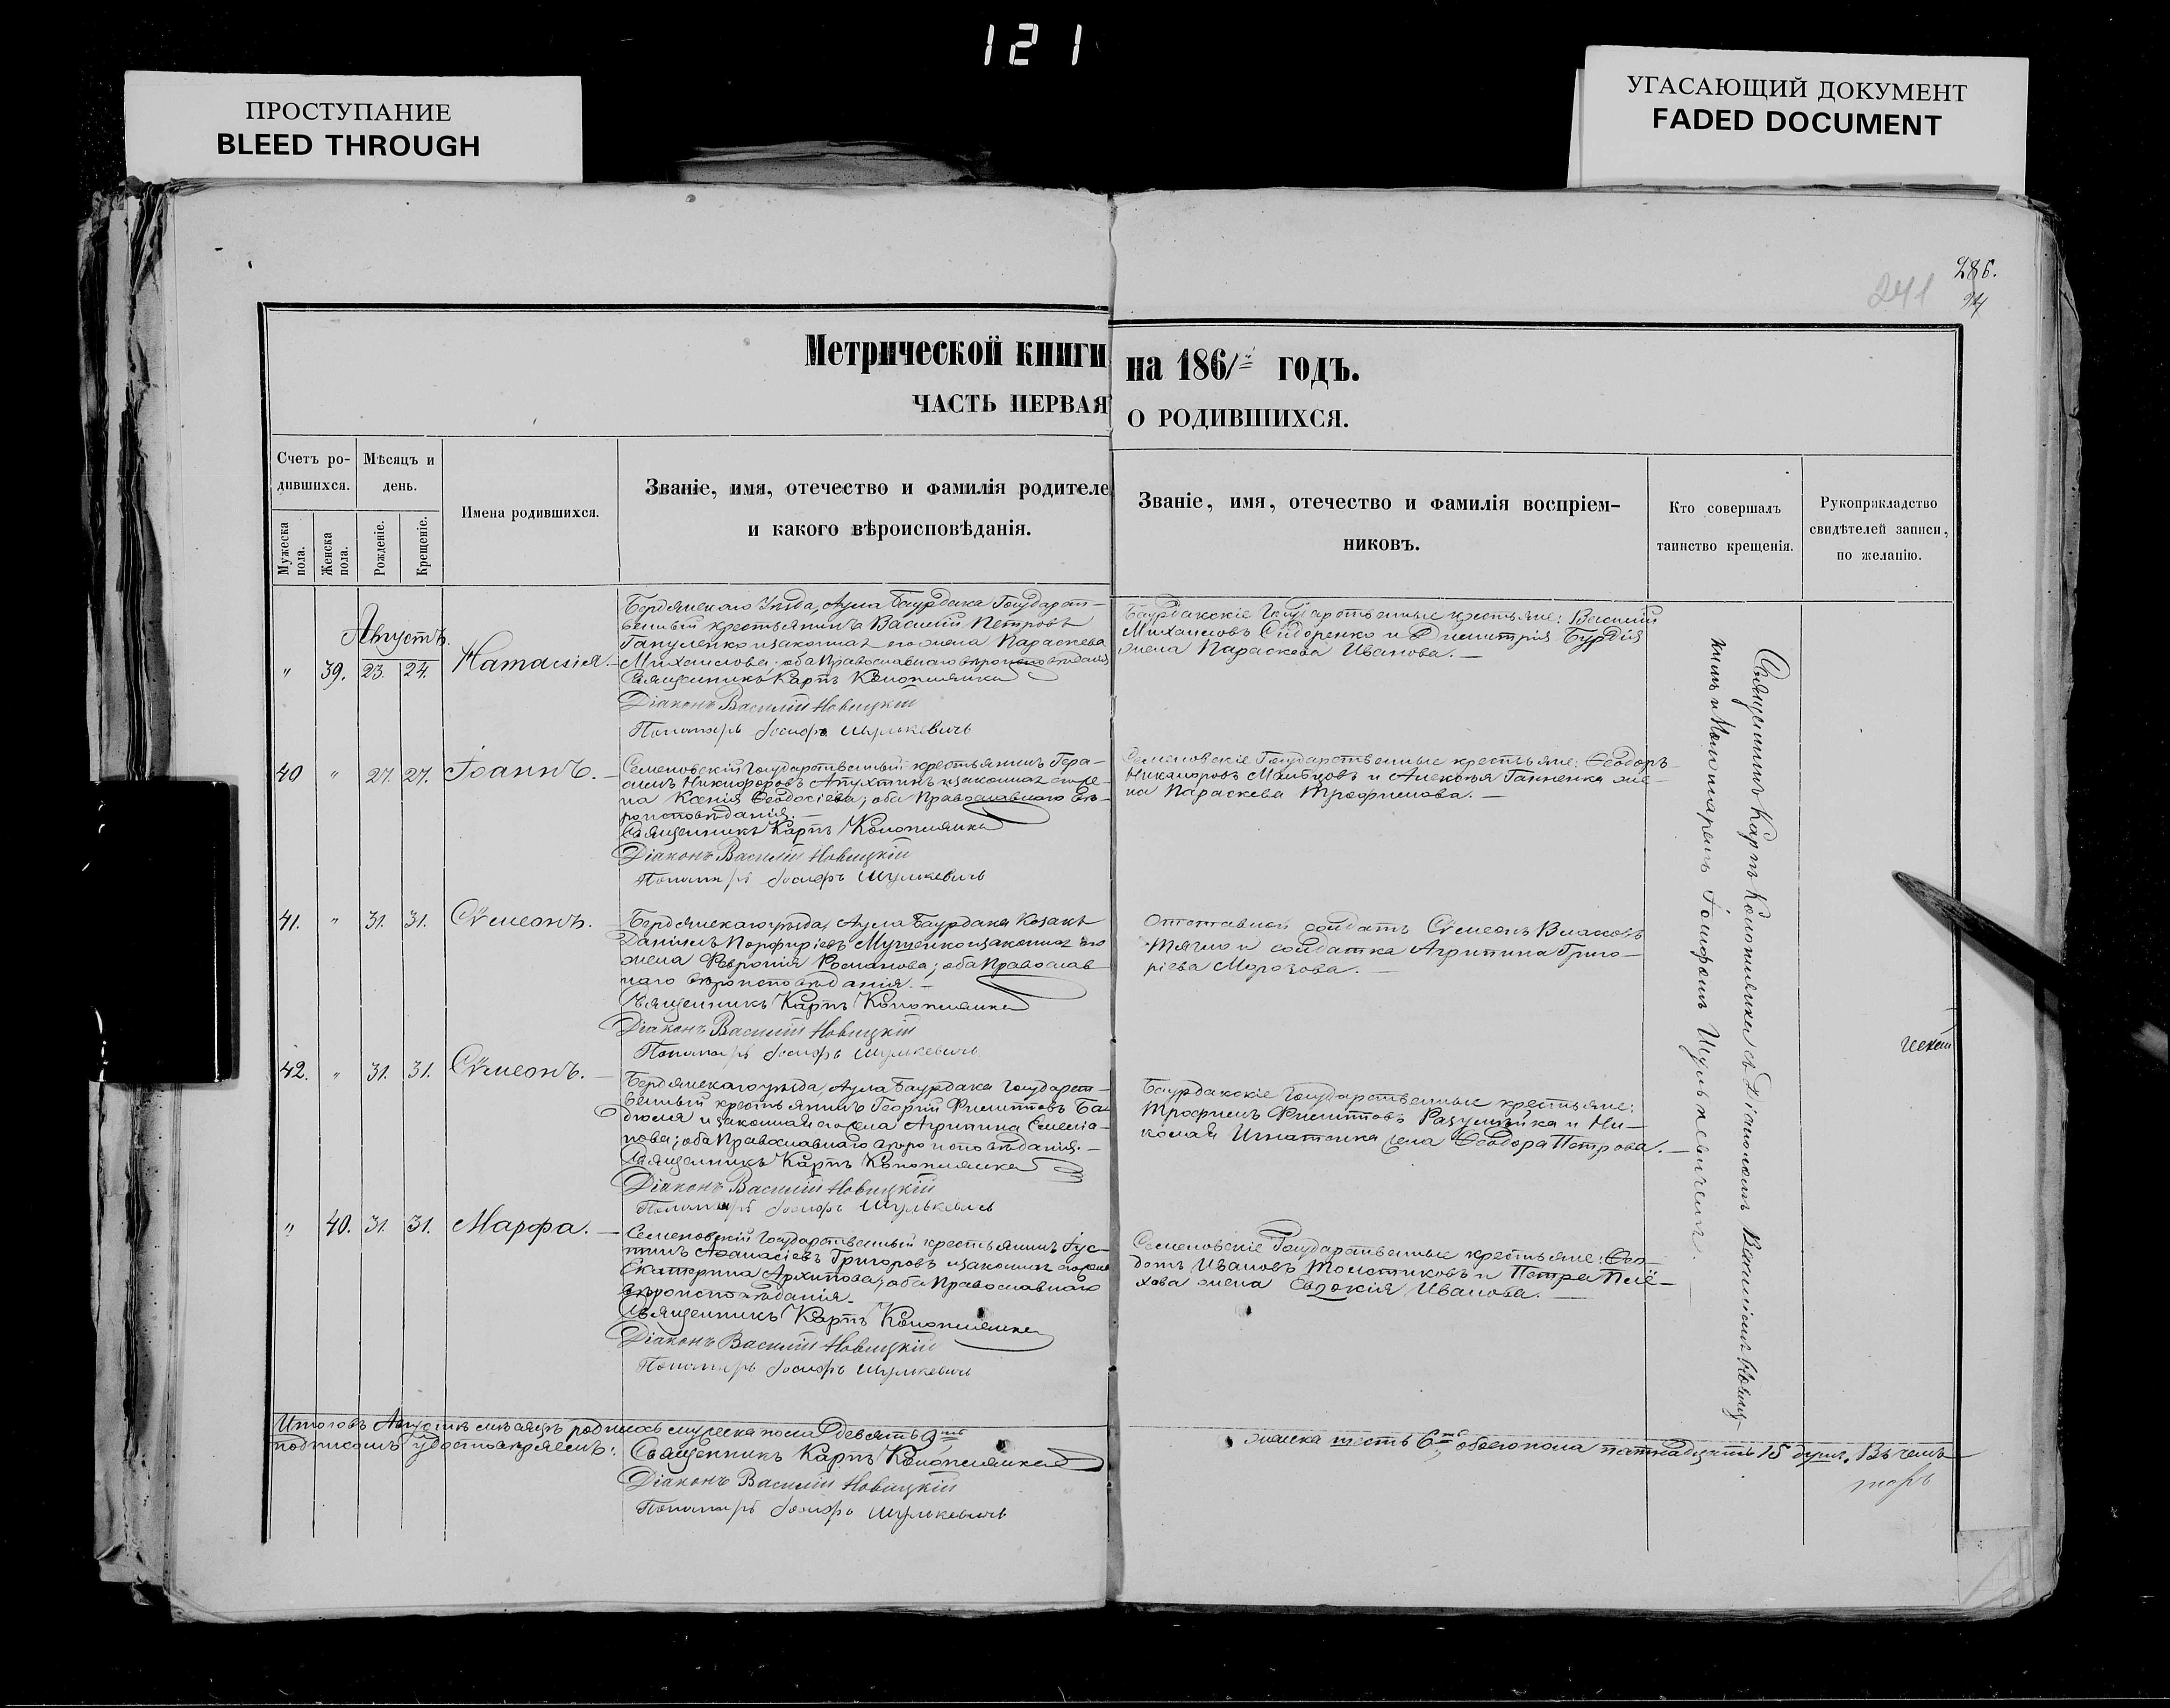 121
ПРОСТУПАНИЕ
BLEED THROUGH
УГАСАЮЩИЙ ДОКУМЕНТ
FADED DOCUMENT
286.
241
94
Метрической книги на 1861й годъ.
ЧАСТЬ ПЕРВАЯ О РОДИВШИХСЯ.
Счетъ ро-
дившихся.
Мѣсяцъ и
день.
Мужеска
пола.
Женска
пола.
Рожденіе.
Крещеніе.
Имена родившихся.
Званіе, имя, отечество и фамилія родителе
и какого вѣроисповѣданія.
Званіе, имя, отечество и фамилія воспріем-
никовъ.
Кто совершалъ
таинство крещенія.
Рукоприкладство
свидѣтелей записи,
по желанію.
Августъ.
" 39. 23. 24. Наталія.
Бердянскаго Уѣзда, Аула Баурдака Государст-
венный крестьянинъ Василій Петровъ
Гапуленко и законная его жена Параскева
Михаилова; оба Православнаго вѣроисповѣданія
Священникъ Карпъ Коноплянка
Діаконъ Василій Новицкій
Пономарь Іосифъ Шулькевичъ
Баурдакскіе Государственные крестьяне: Василій
Михаиловъ Сидоренко и Димитрія Бурдія
жена Параскева Иванова.
40 " 27. 27. Іоаннъ.
Семеновскій Государственный крестьянинъ Гера-
симъ Никифоровъ Апухтинъ и законная его же-
на Ксенія Ѳеодосіева; оба Православнаго вѣ-
роисповѣданія.
Священникъ Карпъ Коноплянка
Діаконъ Василій Новицкій
Пономарь Іосифъ Шулькевичъ
Семеновскіе Государственные крестьяне: Ѳеодоръ
Никаноровъ Мальцовъ и Алексѣя Ганненка же-
на Параскева Трофимова.
41. " 31. 31. Сѵмеонъ.
Бердянскаго уѣзда, Аула Баурдака Козакъ
Даніилъ Порфиріевъ Мущенко и законная его
жена Февронія Романова; оба Православ
наго вѣроисповѣданія.
Священникъ Карпъ Коноплянка
Діаконъ Василій Новицкій
Пономарь Іосифъ Шулькевичъ
Отставной солдатъ Сѵмеонъ Власовъ
и солдатка Агрипина Григо-
ріева Морозова.
42. " 31. 31. Сѵмеонъ.
Бердянскаго уѣзда, Аула Баурдака Государст-
венный крестьянинъ Георгій Филипповъ Ба-
дюля и законная его жена Агрипина Семеніо-
нова; оба Православнаго вѣроисповѣданія.
Священникъ Карпъ Коноплянка
Діаконъ Василій Новицкій
Пономарь Іосифъ Шулькевичъ
Баурдакскіе Государственные крестьяне:
Трофимъ Филипповъ Разумѣйка и Ни-
колая Игнатенка жена Ѳеодора Петрова.
" 40. 31. 31. Марфа.
Семеновскій Государственный крестьянинъ Іус-
тинъ Аѳанасіевъ Григоровъ и законная его жена
Екатерина Архипова; оба Православнаго
вѣроисповѣданія.
Священникъ Карпъ Коноплянка
Діаконъ Василій Новицкій
Пономарь Іосифъ Шулькевичъ
Семеновскіе Государственные крестьяне: Ѳео-
дотъ Ивановъ Толстиковъ и Петра Плё-
хова жена Евдокія Иванова.
Священникъ Карпъ Коноплянка съ Діакономъ Василіемъ Новиц-
кимъ и Пономаремъ Іосифомъ Шулькевичемъ.
Итого въ Августѣ мѣсяцѣ родилось мужеска пола девять 9ть
женска шесть 6ть, обоего пола пятнадцать 15 душъ. Въ чемъ
подписомъ удостовѣряемъ:
Священникъ Карпъ Коноплянка
Діаконъ Василій Новицкій
Пономарь Іосифъ Шулькевичъ